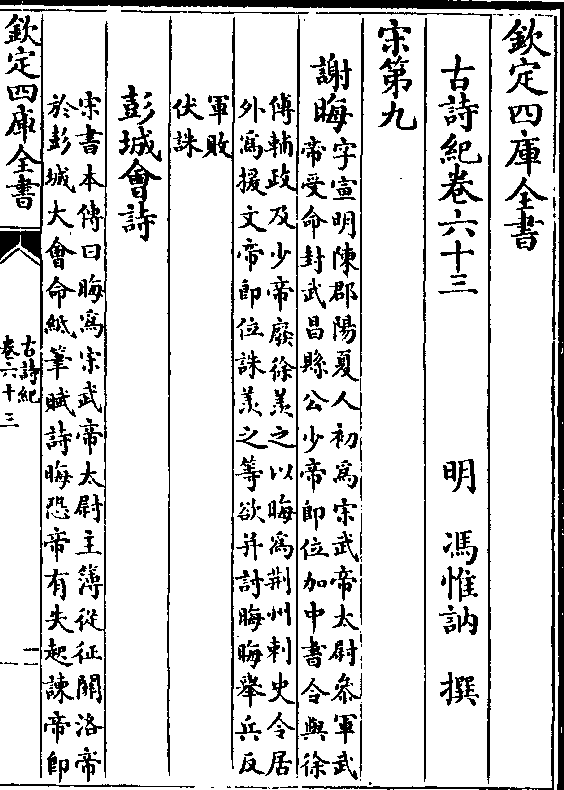 欽定四庫全書
古詩紀卷六十三
明 馮惟訥 撰
宋第九
謝晦
字宣明陳郡陽夏人初爲宋武帝太尉參軍武
帝受命封武昌縣公少帝即位加中書令與徐
傅輔政及少帝廢徐羨之以晦爲荆州刺史令居
外爲援文帝即位誅羨之等欲并討晦晦舉兵反
軍敗
伏誅
彭城會詩
宋書本傳曰晦爲宋武帝太尉主簿從征關洛帝
於彭城大會命紙筆賦詩晦恐帝有失起諫帝即
欽定四庫全書
古詩紀
卷六十三
一